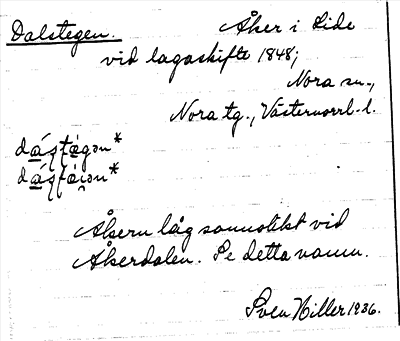 Dalstegen. Åker i Lide
vid lagaskifte 1848;
Nora sn.,
Nora tg., Västernorrl. l.
Åkern låg sannolikt vid
Åkerdalen. Se detta namn.
Sven Hiller 1936.